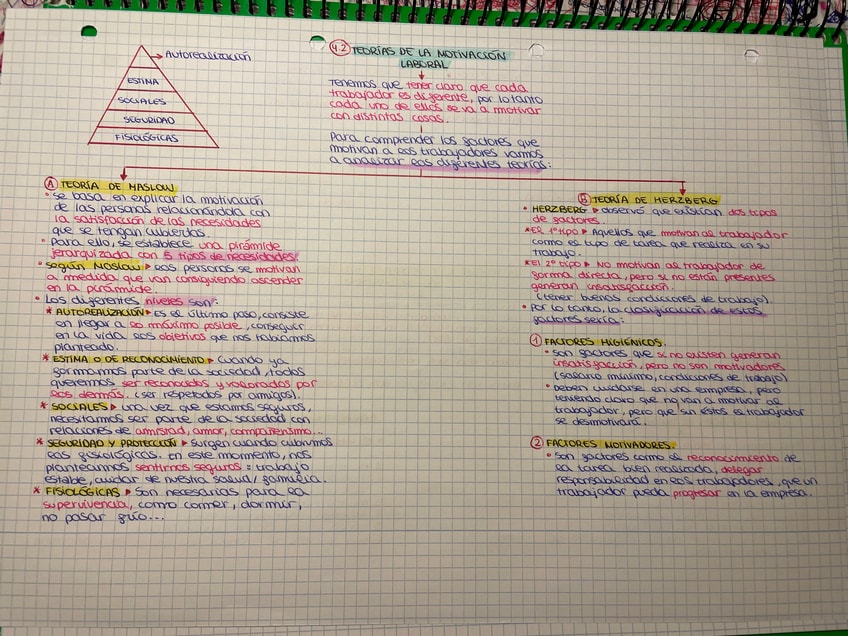 Autorealización
ESTIMA
SOCIALES
SEGURIDAD
FISIOLÓGICAS
4.2 TEORÍAS DE LA MOTIVACIÓN
LABORAL
Tenemos que tener claro que cada
trabajador es diferente, por lo tanto
cada uno de ellos se va a motivar
con distintas cosas.
Para comprender los factores que
motivan a los trabajadores vamos
a analizar las diferentes teorías:
A TEORÍA DE MASLOW
• se basa en explicar la motivación
de las personas relacionándola con
la satisfacción de las necesidades
que se tengan cubiertas.
• Para ello, se establece una pirámide
jerarquizada con 5 tipos de necesidades.
• según Maslow ▸ las personas se motivan
a medida que van consiguiendo ascender
en la pirámide.
• Los diferentes niveles son:
* AUTOREALIZACIÓN ▸ Es el último paso, consiste
en llegar a lo máximo posible, conseguir
en la vida los objetivos que nos habíamos
planteado.
* ESTIMA O DE RECONOCIMIENTO ▸ Cuando ya
formamos parte de la sociedad, todos
queremos ser reconocidos y valorados por
los demás. (ser respetados por amigos).
* SOCIALES ▸ una vez que estamos seguros,
necesitamos ser parte de la sociedad con
relaciones de amistad, amor, compañerismo...
* SEGURIDAD Y PROTECCIÓN ▸ Surgen cuando cubrimos
las fisiológicas. en este momento, nos
planteamos sentirnos seguros = trabajo
estable, cuidar de nuestra salud/familia.
* FISIOLÓGICAS ▸ Son necesarias para la
supervivencia, como comer, dormir,
no pasar frío...
B TEORÍA DE HERZBERG
• HERZBERG ▸ observó que existían dos tipos
de factores.
* El 1º tipo ▸ Aquellos que motivan al trabajador
como es tipo de tarea que realiza en su
trabajo.
* El 2º tipo ▸ No motivan al trabajador de
forma directa, pero si no están presentes
generan insatisfacción.
(tener buenas condiciones de trabajo).
• Por lo tanto, la clasificación de estos
factores sería:
1 FACTORES HIGIÉNICOS.
• son factores que si no existen generan
insatisfacción, pero no son motivadores
(salario mínimo, condiciones de trabajo)
• deben cuidarse en una empresa, pero
teniendo claro que no van a motivar al
trabajador, pero que sin éstos el trabajador
se desmotivará.
2 FACTORES MOTIVADORES.
• Son factores como el reconocimiento de
la tarea bien realizada, delegar
responsabilidad en los trabajadores, que un
trabajador pueda progresar en la empresa.